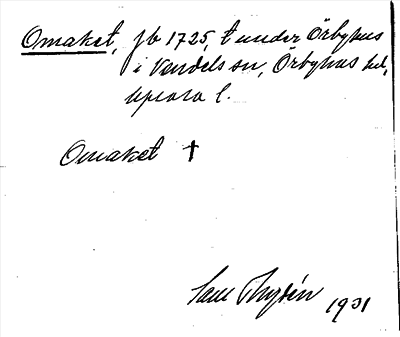 Omaket, jb 1725, t under Örbyhus
i Vendels sn, Örbyhus hd,
Uppsala l.
Omaket †
Sam Thysén 1931